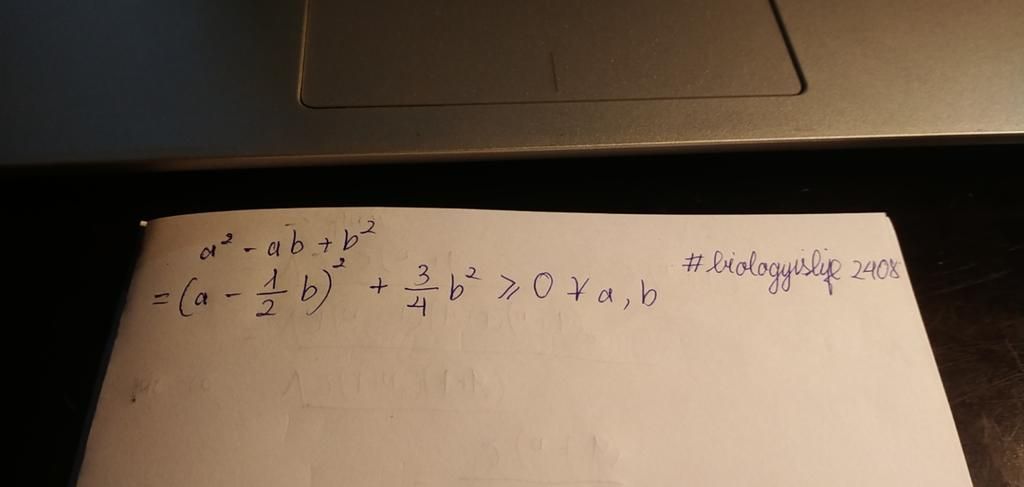 a² - ab + b²
= (a - 1/2 b)² + 3/4 b² ⩾ 0 ∀ a, b
#biologyislife 2408